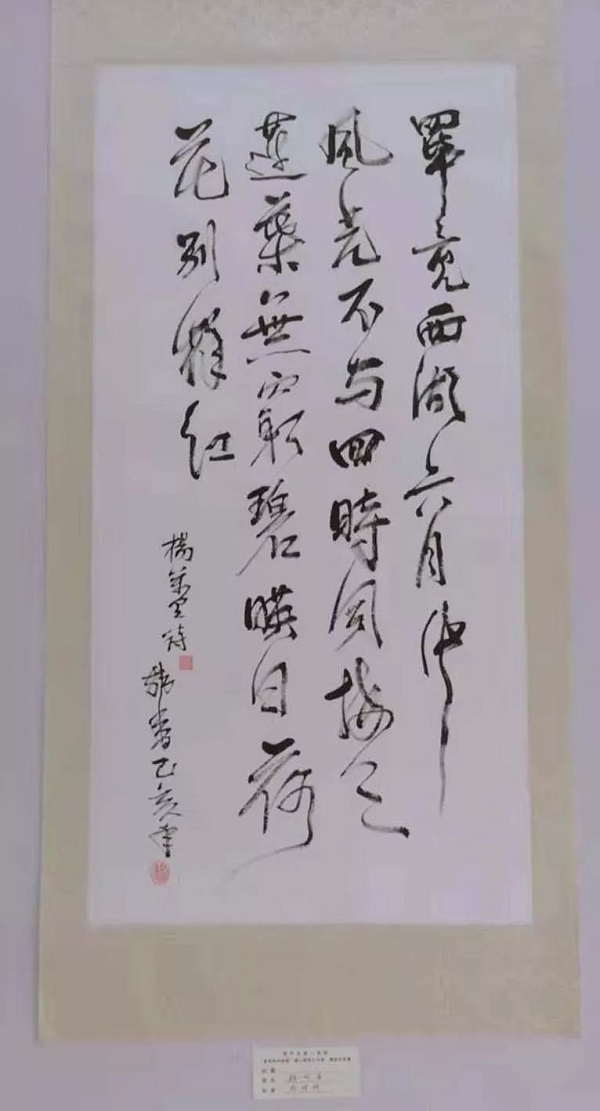 畢竟西湖六月中
風光不与四時同接天
蓮葉無窮碧暎日荷
花別樣紅
楊萬里詩
書乙亥年